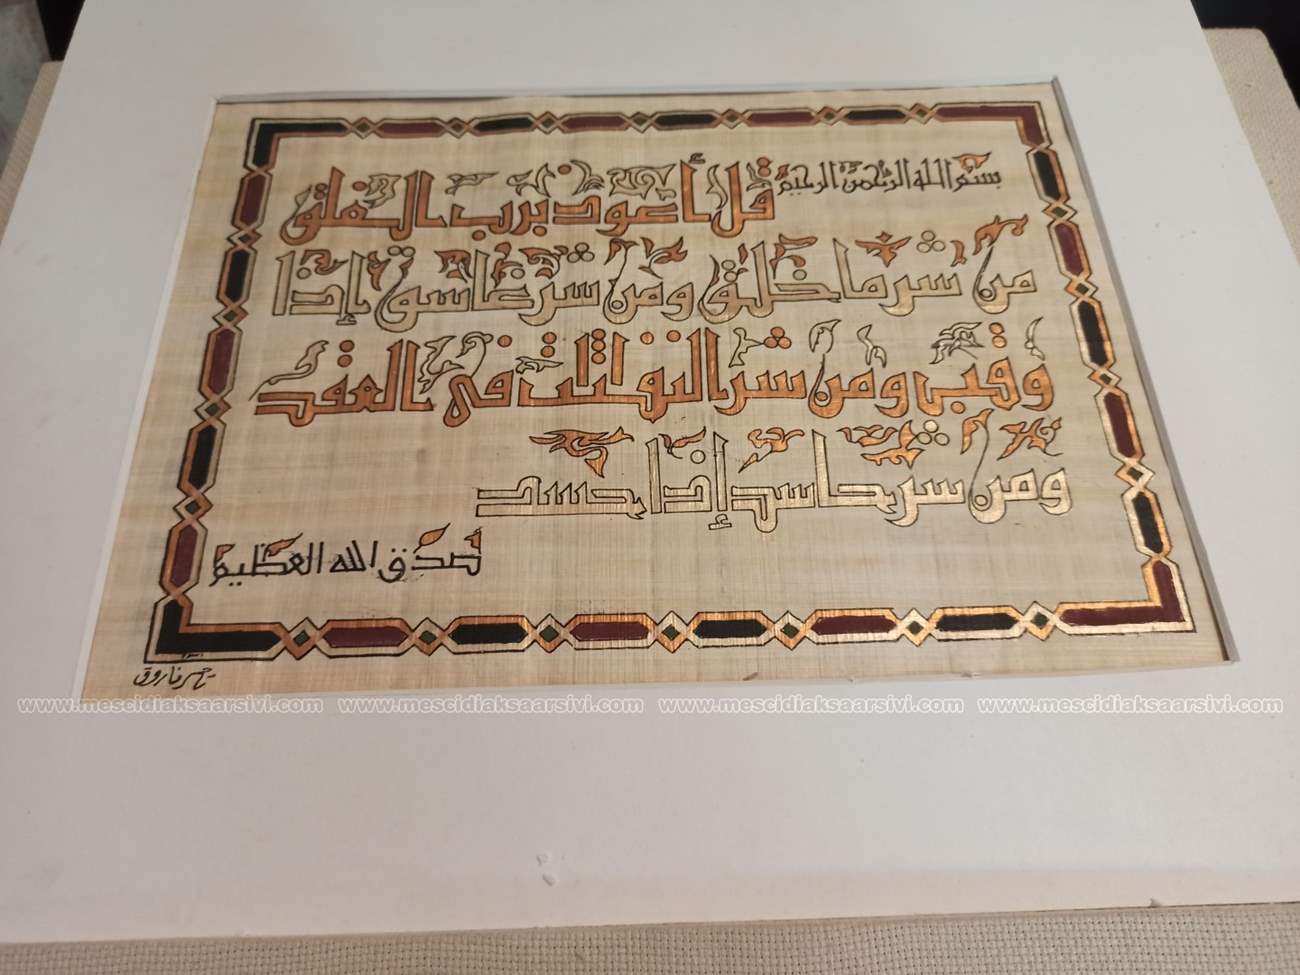 بسم الله الرحمن الرحيم قل أعوذ برب الفلق
من شر ما خلق ومن شر غاسق إذا
وقب ومن شر النفاثات في العقد
ومن شر حاسد إذا حسد
صدق الله العظيم
فاروق
www.mescidiaksaarsivi.com www.mescidiaksaarsivi.com www.mescidiaksaarsivi.com www.mescidiaksaarsivi.com